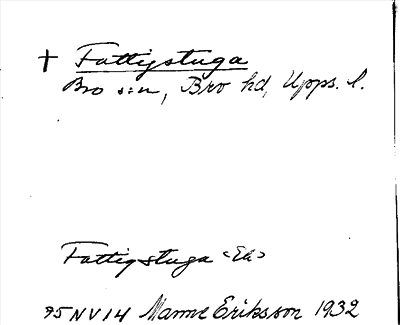 † Fattigstuga
Bro s:n, Bro hd, Upps. l.
Fattigstuga <Ek>
75 NV 14 Manne Eriksson 1932